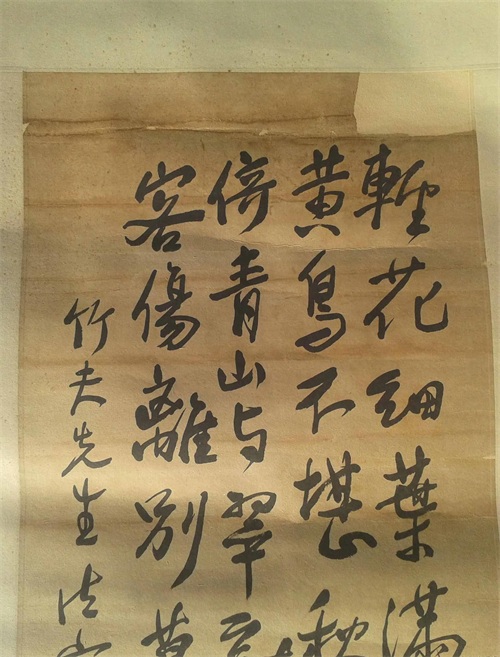 輕花細葉滿
黄鳥不堪
倚青山与翠
客傷離別莫
竹夫先生法家